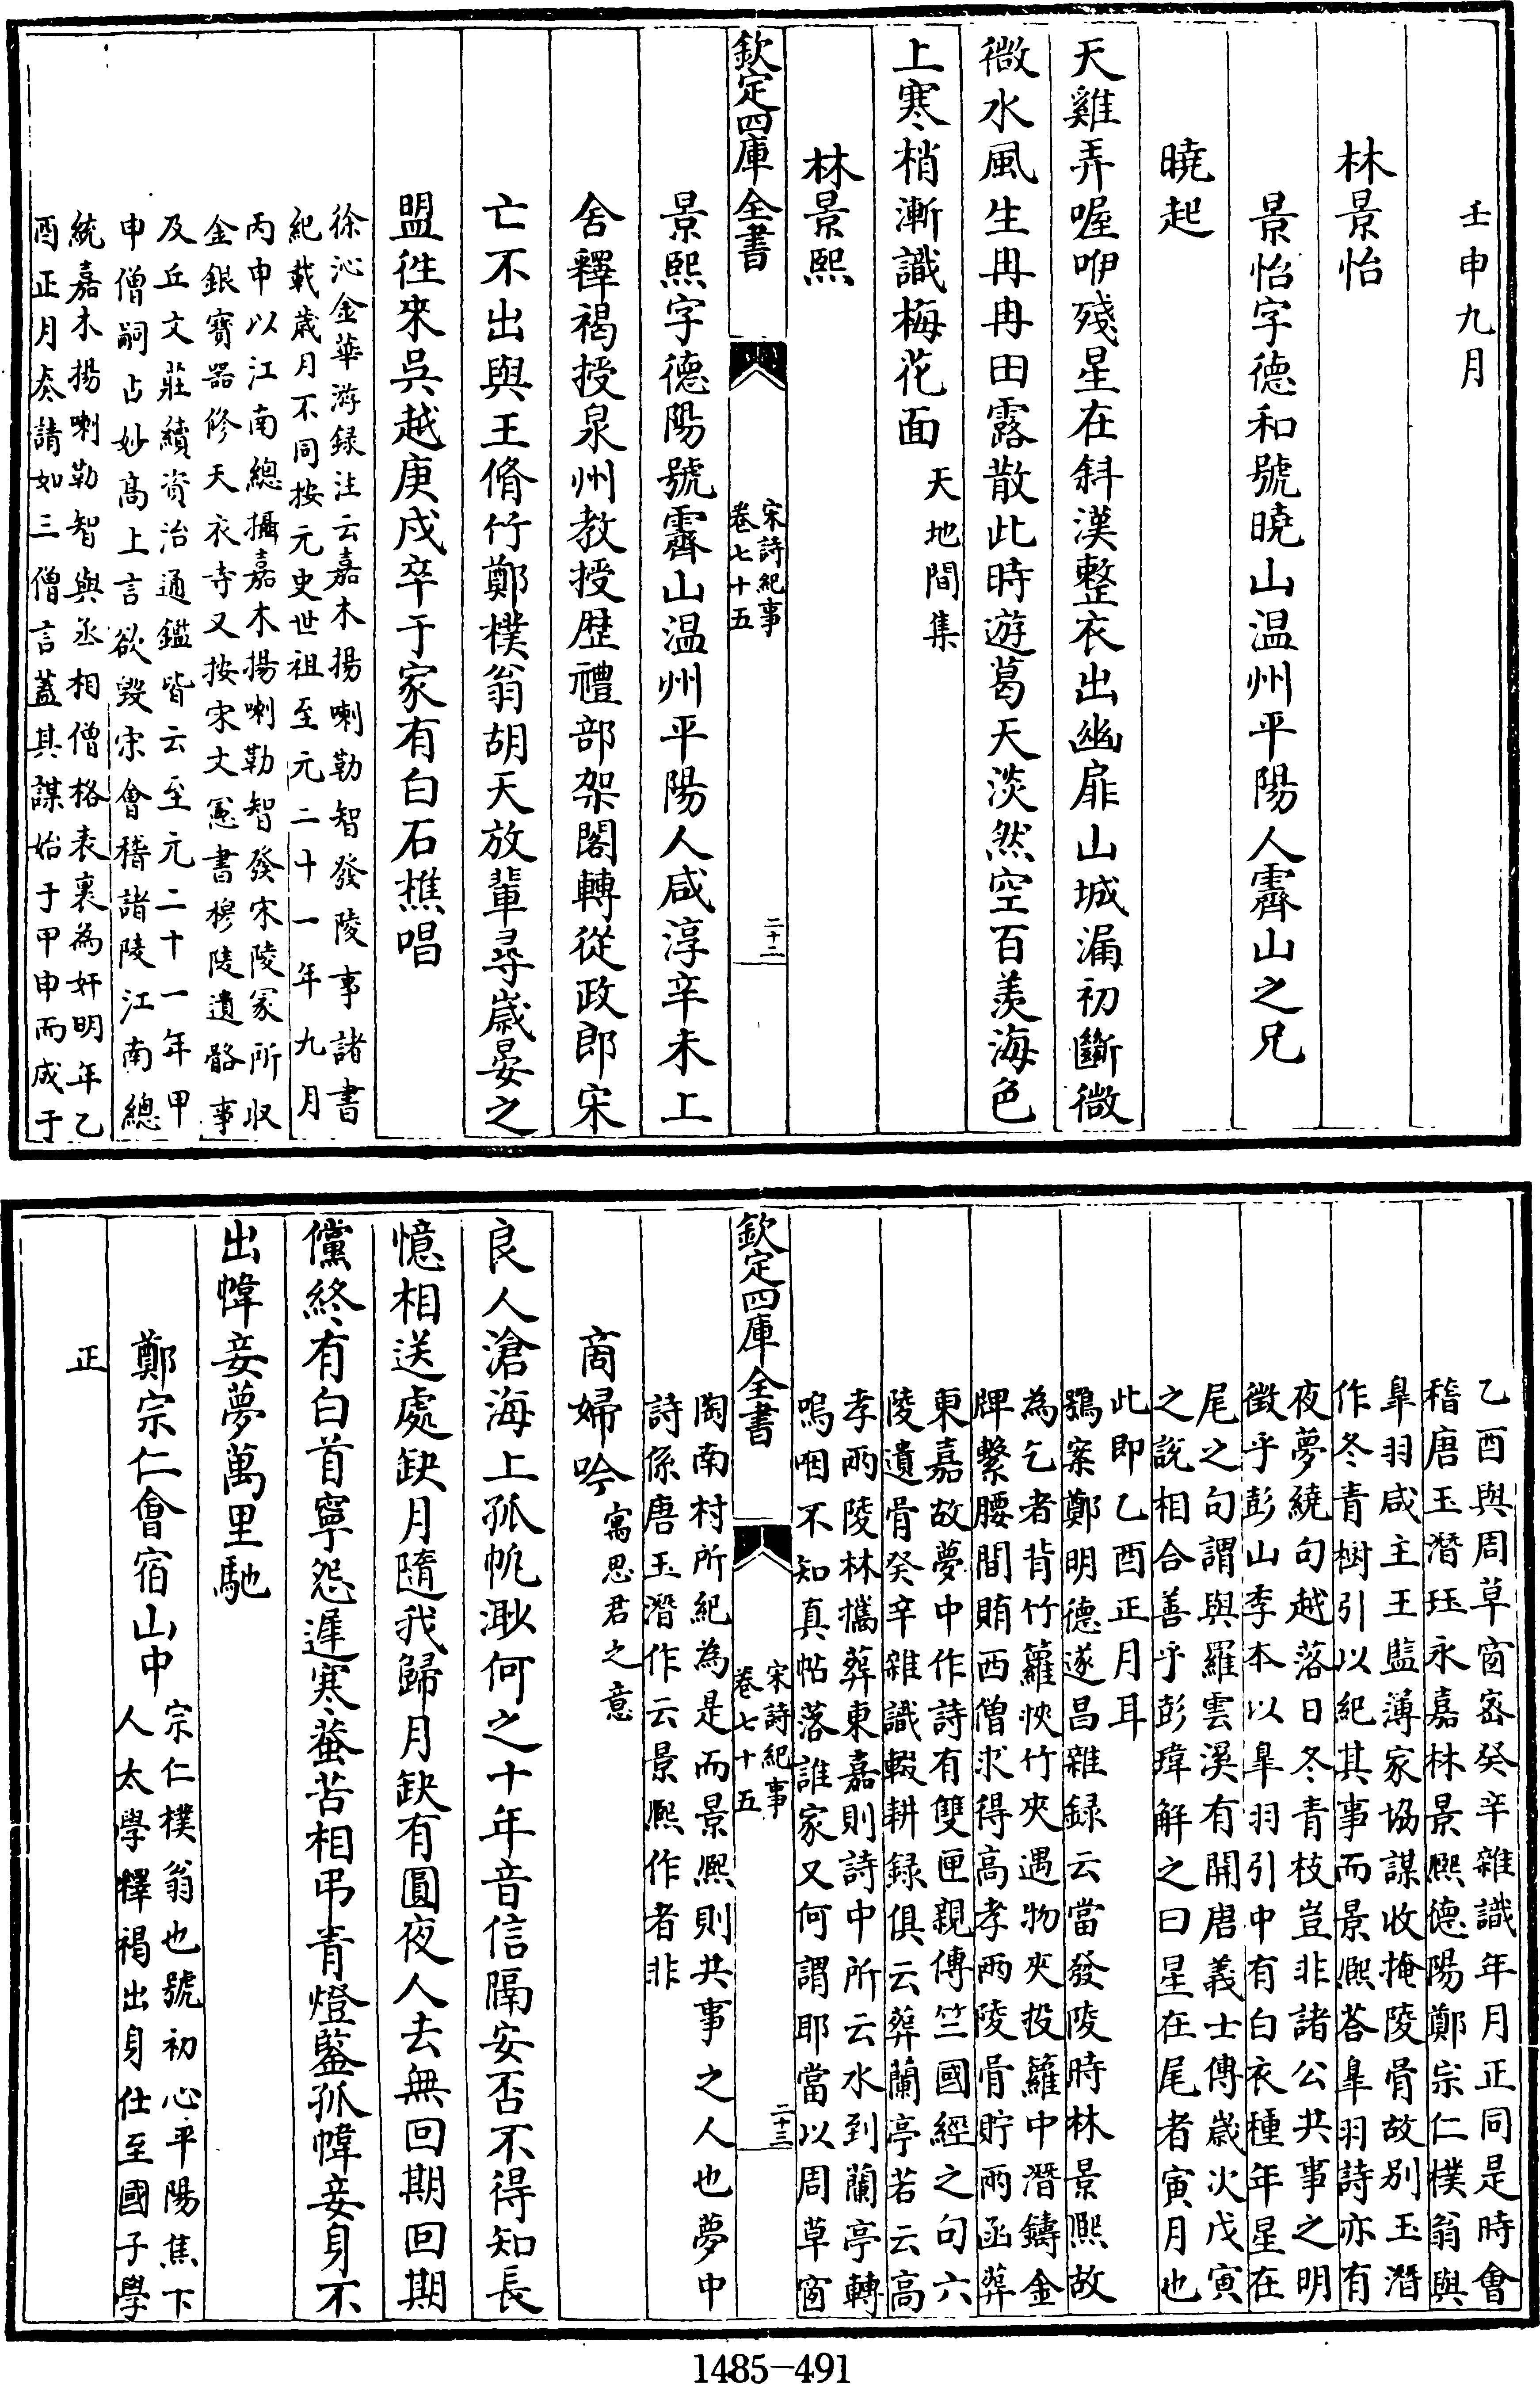 壬申九月
林景怡
景怡字德和號曉山温州平陽人霽山之兄
曉起
天雞弄喔咿殘星在斜漢整衣出幽扉山城漏初斷微
微水風生冉冉田露散此時遊葛天淡然空百羨海色
上寒梢漸識梅花面天地間集
林景熙
欽定四庫全書
宋詩紀事
卷七十五
二十二
景熙字德陽號霽山温州平陽人咸淳辛未上
舍釋褐授泉州教授歴禮部架閣轉從政郎宋
亡不出與王脩竹鄭樸翁胡天放輩尋歲晏之
盟徃來吳越庚戍卒于家有白石樵唱
徐沁金華游録注云嘉木揚喇勒智發陵事諸書
紀載歲月不同按元史世祖至元二十一年九月
丙申以江南總攝嘉木揚喇勒智發宋陵冢所収
金銀寶器修天衣寺又按宋文憲書穆陵遺骼事
及丘文莊續資治通鑑皆云至元二十一年甲
申僧嗣占妙高上言欲毀宋會稽諸陵江南總
統嘉木揚喇勒智與丞相僧格表裏為奸明年乙
酉正月奏請如三僧言蓋其謀始于甲申而成于
乙酉與周草窗密癸辛雜識年月正同是時會
稽唐玉潛珏永嘉林景熙德陽鄭宗仁樸翁與
臯羽咸主王監薄家協謀收掩陵骨故别玉潛
作冬青樹引以紀其事而景熙荅臯羽詩亦有
夜夢繞句越落日冬青枝豈非諸公共事之明
徴乎彭山李本以臯羽引中有白衣種年星在
尾之句謂與羅雲溪有開唐義士傳歲次戊寅
之說相合善乎彭瑋解之曰星在尾者寅月也
此即乙酉正月耳
鶚案鄭明德遂昌雜録云當發陵時林景熙故
為乞者背竹籮怏竹夾遇物夾投籮中潛鑄金
牌繫腰間賄西僧求得高孝兩陵骨貯兩函葬
東嘉故夢中作詩有雙匣親傳竺國經之句六
陵遺骨癸辛雜識輟耕録俱云葬蘭亭若云高
孝兩陵林攜葬東嘉則詩中所云水到蘭亭轉
嗚咽不知真帖落誰家又何謂耶當以周草窗
欽定四庫全書
宋詩紀事
卷七十五
二十三
陶南村所紀為是而景熙則共事之人也夢中
詩係唐玉潛作云景熙作者非
商婦吟寓思君之意
良人滄海上孤帆渺何之十年音信隔安否不得知長
憶相送處缺月隨我歸月缺有圓夜人去無回期回期
儻終有白首寧怨遲寒蛩苦相弔青燈鑒孤幃妾身不
出幃妾夢萬里馳
鄭宗仁會宿山中宗仁樸翁也號初心平陽焦下
人太學釋褐出身仕至國子學
正
1485-491